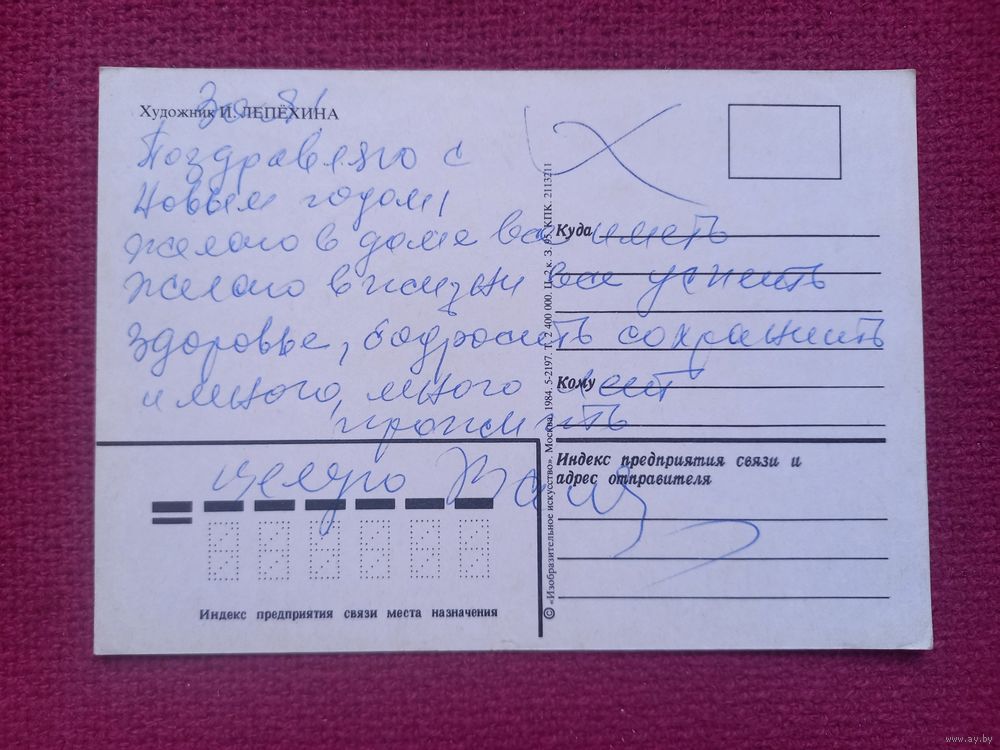 Художник И. ЛЕПЁХИНА
Зоя!
Поздравляю с
Новым годом,
желаю в доме все иметь
желаю в жизни все успеть
здоровье, бодрость сохранить
и много, много лет
прожить
целую Валя
Куда
Кому
Индекс предприятия связи и
адрес отправителя
Индекс предприятия связи места назначения
© «Изобразительное искусство». Москва. 1984. 5-2197. Т. 2 400 000. Ц. 2 к. З. 95. КПК. 2113211
www.ay.by